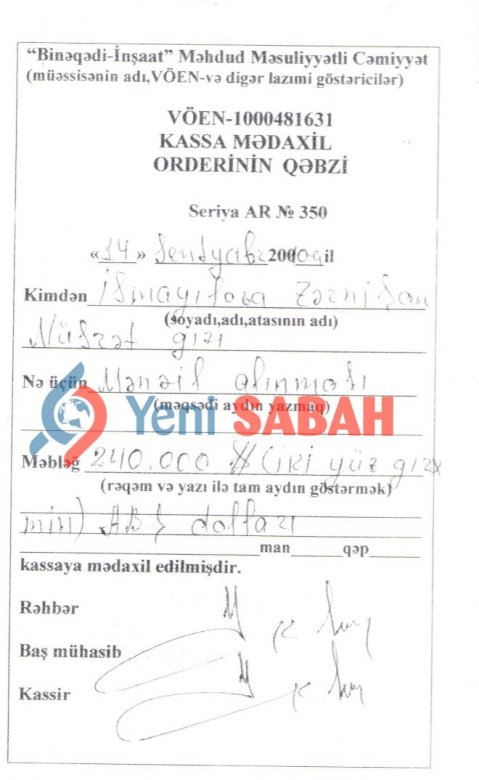 “Binəqədi-İnşaat” Məhdud Məsuliyyətli Cəmiyyət
(müəssisənin adı,VÖEN-və digər lazımi göstəricilər)
VÖEN-1000481631
KASSA MƏDAXİL
ORDERİNİN QƏBZİ
Seriya AR № 350
«14» Sentyabr 200 il
Kimdən İsmayılova Zərnişan
(soyadı,adı,atasının adı)
Nüsrət qızı
Nə üçün Mənzil alınması
(məqsədi aydın yazmaq)
Yeni SABAH
Məbləğ 240.000 $ (iki yüz qırx
(rəqəm və yazı ilə tam aydın göstərmək)
min) ABŞ dolları
man qəp
kassaya mədaxil edilmişdir.
Rəhbər
Baş mühasib
Kassir